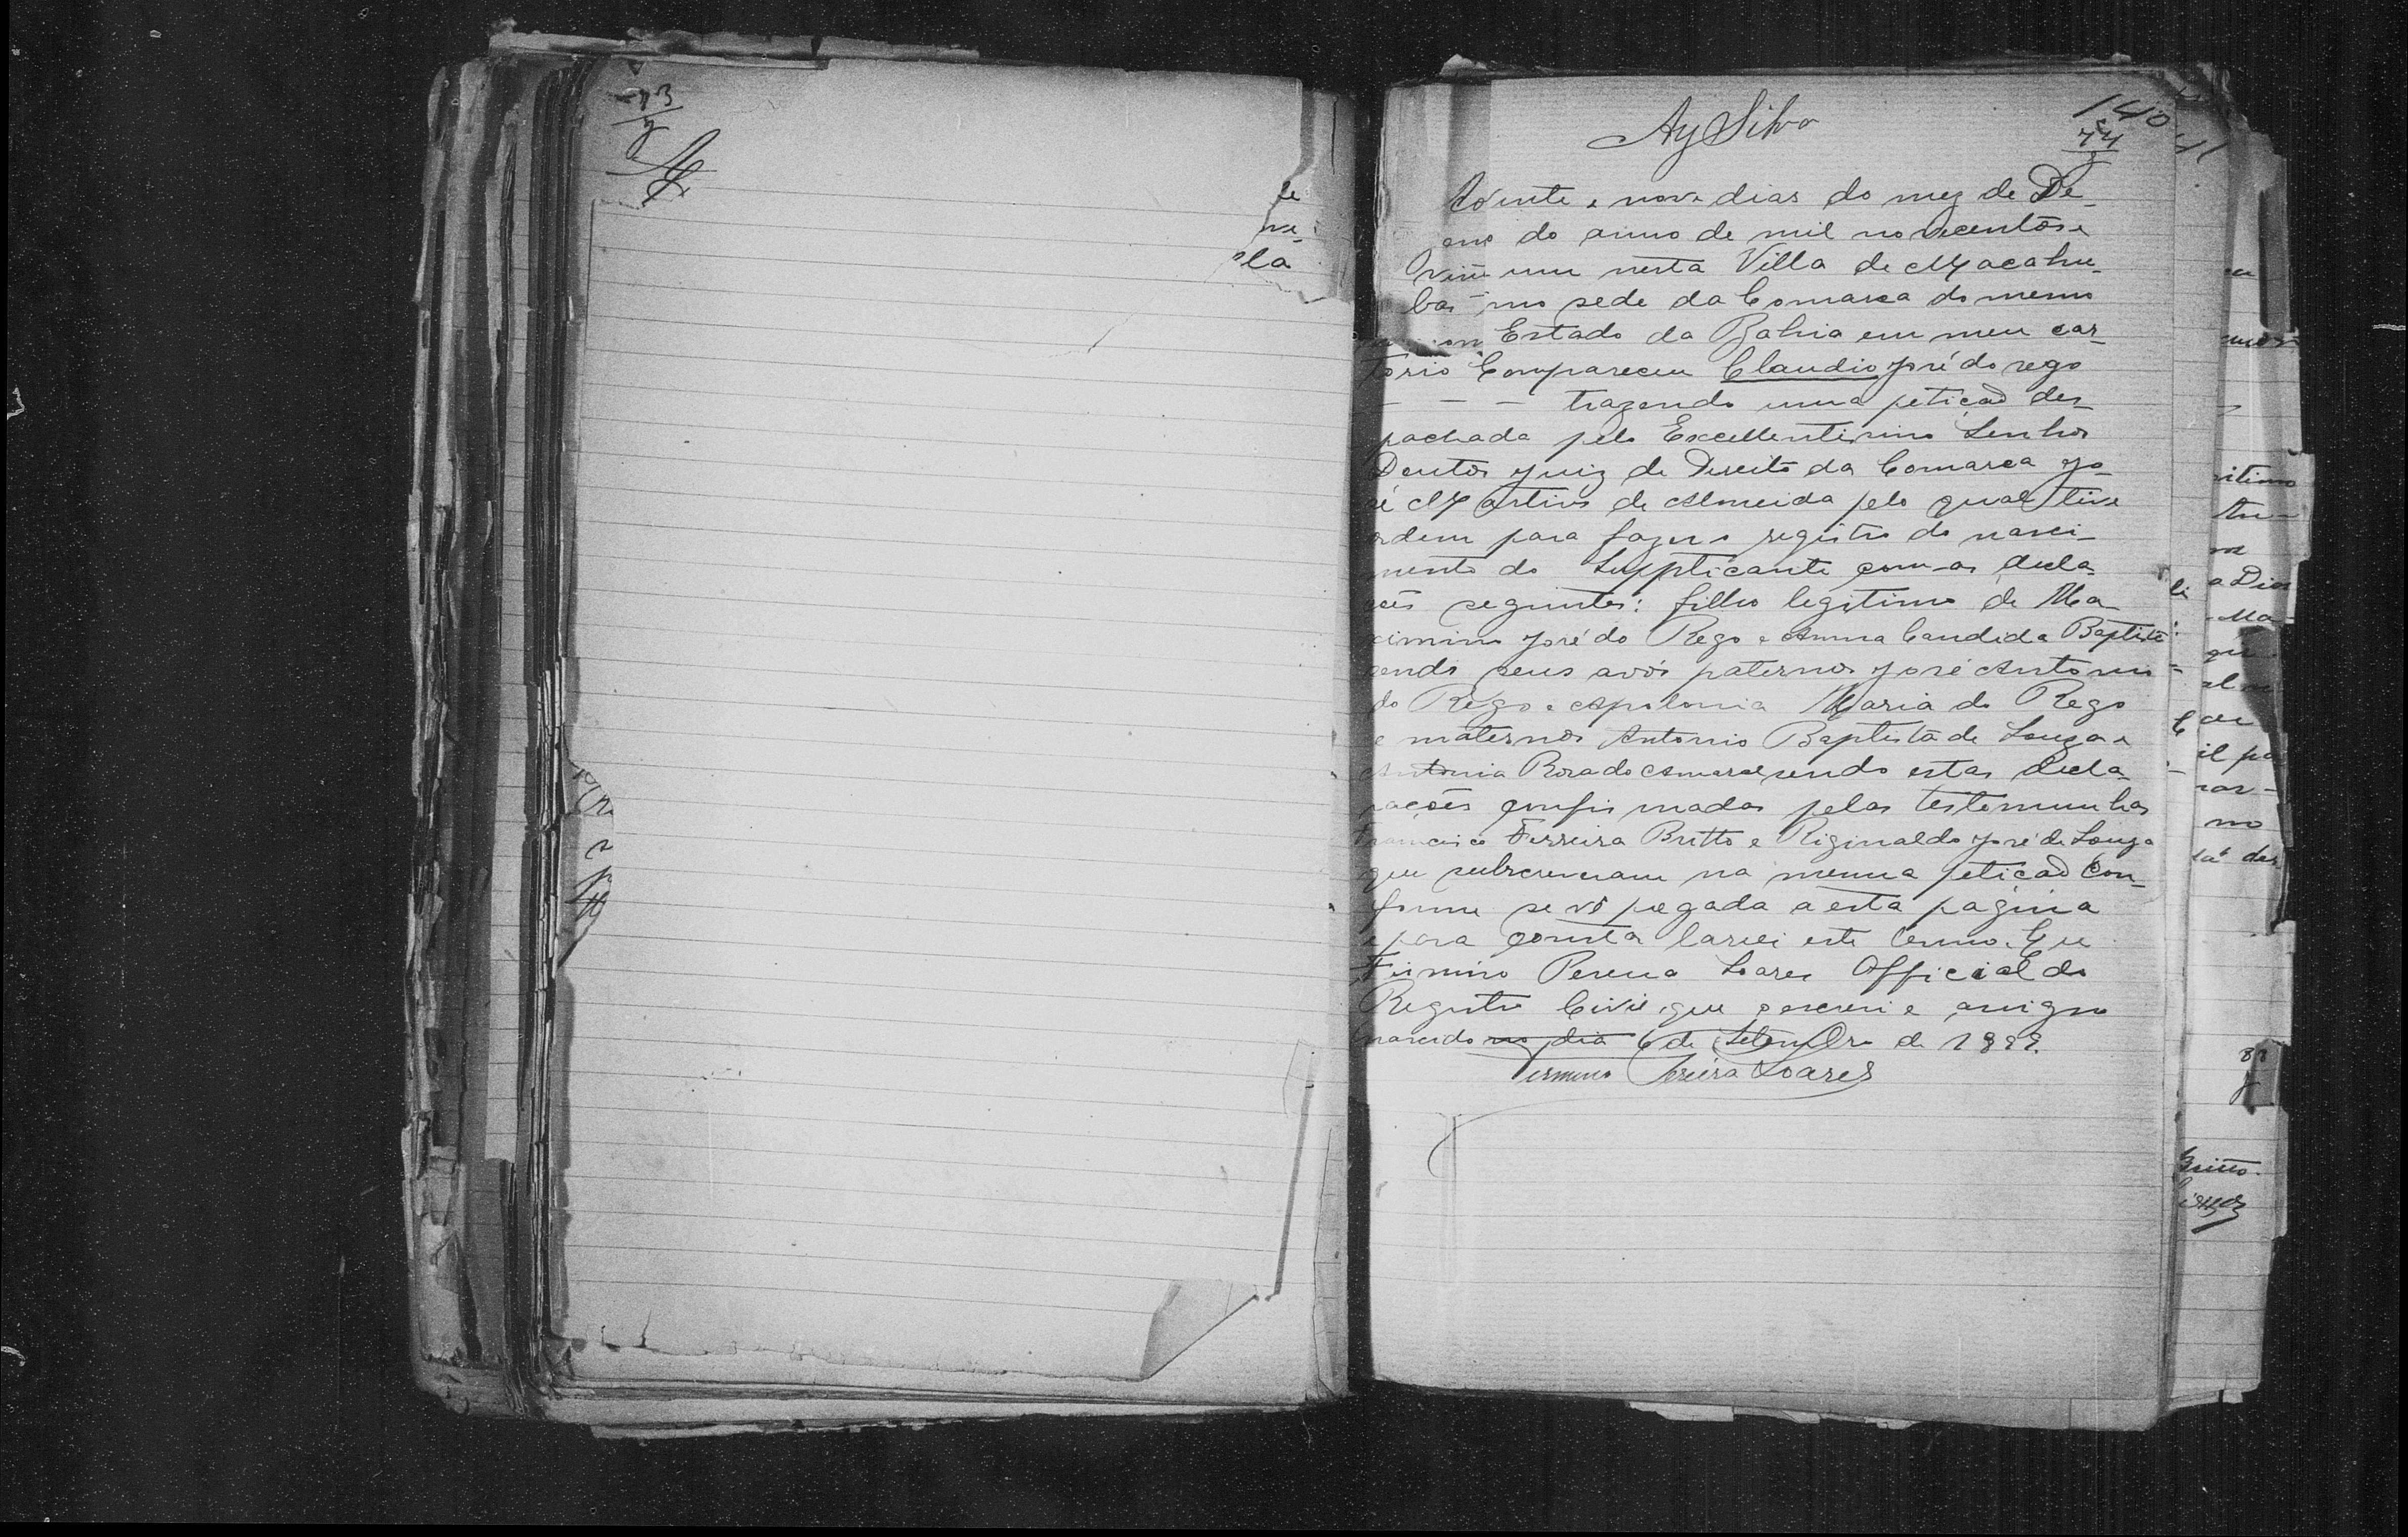 73
le
me
la
Ay Silva
140
74
vinte e nove dias do mez de De_
do anno de mil novecentos e
vin um nesta Villa de Macahu_
bas sede da Comarca do mesmo
Estado da Bahia em meu car_
torio Compareceu Claudio José do rego
_ _ _ trazendo uma petição des_
pachada pelo Excellentissimo Senhor
Doutor Juiz de Direito da Comarca Jo_
sé Martins de Almeida pelo qual tive
ordem para fazer o registro do nasci_
mento do Supplicante com as decla_
ções seguintes: filho legitimo de Ma_
ximino José do Rego e Anna Candida Baptista
sendo seus avós paternos José Antonio
do Rego e Apolonia Maria do Rego
e maternos Antonio Baptista de Souza e
Antonia Rosa do Amaral sendo estas decla_
rações confirmadas pelas testemunhas
Francisco Ferreira Britto e Riginaldo José de Souza
que subscreveram na mesma petição Con_
forme se vê pegada a esta pagina
e para constar lavrei este termo. Eu
Firmino Pereira Soares Official do
Registro Civil que o escrevi e assigno
nascido no dia 6 de Setembro de 1899.
Firmino Pereira Soares